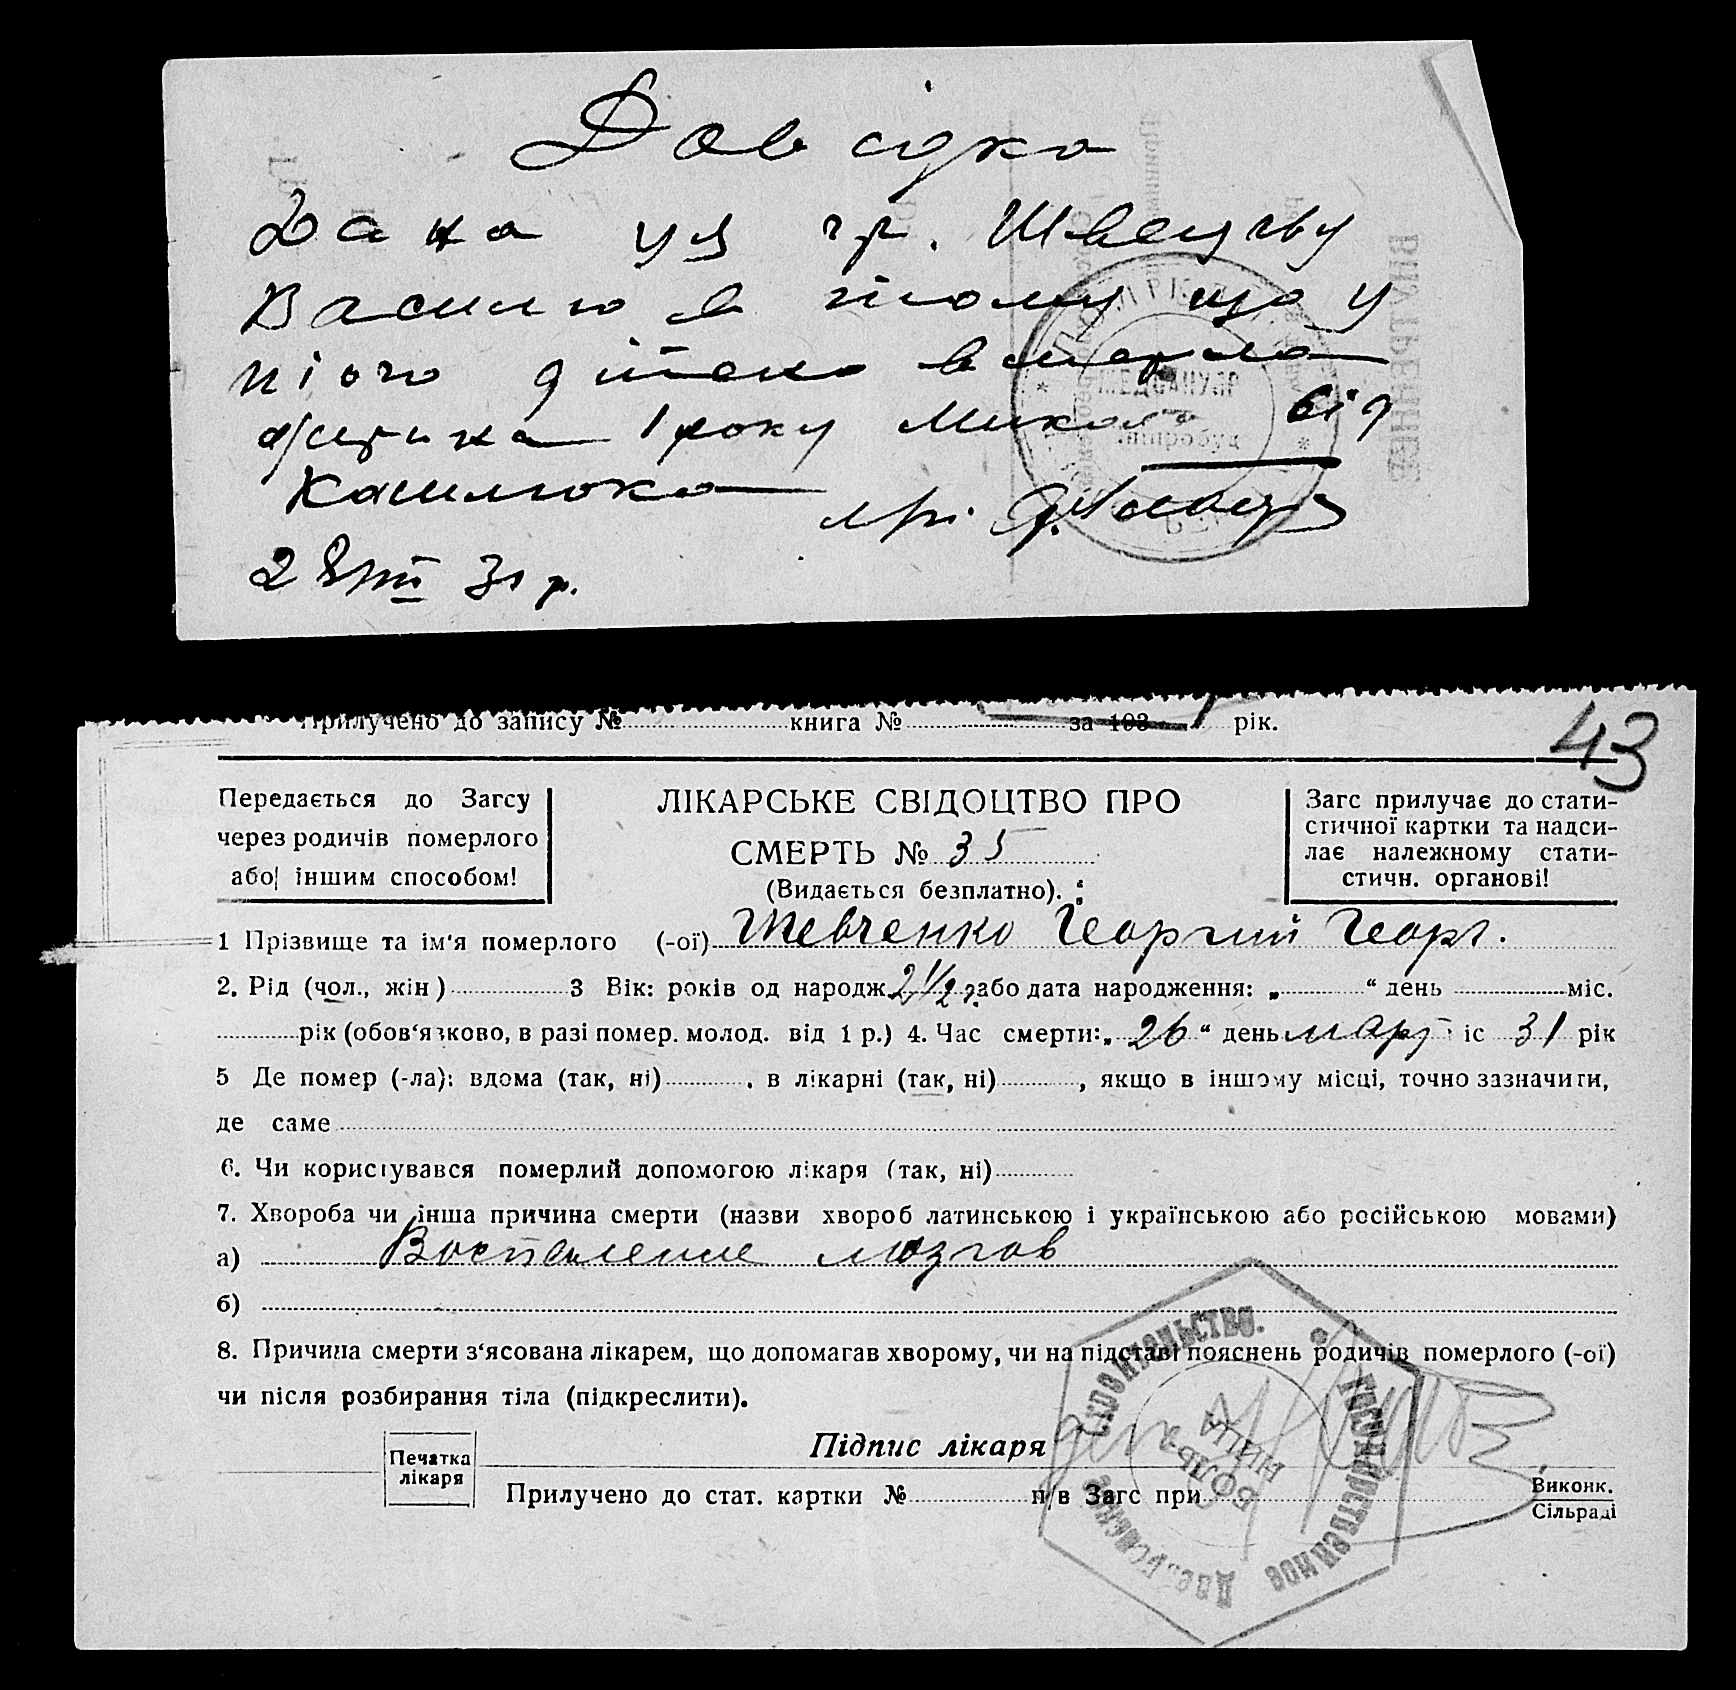 Довідка
Дана ця гр. Швецову
Василю в тому що у
нього дитяна вмерла
дитина 1 року Микола від
Кашлюка
лрі.
28/III 31 р.
МЕДСАНУПР
Дніпробуд
Прилучено до запису № книга № за 193 рік.
43
Передається до Загсу
через родичів померлого
або іншим способом!
ЛІКАРСЬКЕ СВІДОЦТВО ПРО
СМЕРТЬ № 35
(Видається безплатно).
Загс прилучає до стати-
стичної картки та надси-
лає належному стати-
стичн. органові!
1 Прізвище та ім'я померлого (-ої) Шевченко Георгий Георг.
2. Рід (чол., жін) 3 Вік: років од народж 2 1/2 г. або дата народження: „ “ день міс.
рік (обов'язково, в разі помер. молод. від 1 р.) 4. Час смерти: „ 26 “ день март іс 31 рік
5 Де помер (-ла): вдома (так, ні) , в лікарні (так, ні) , якщо в іншому місці, точно зазначити,
де саме
6. Чи користувався померлий допомогою лікаря (так, ні)
7. Хвороба чи інша причина смерти (назви хвороб латинською і українською або російською мовами)
а) Воспаление мозгов
б)
8. Причина смерти з'ясована лікарем, що допомагав хворому, чи на підставі пояснень родичів померлого (-ої)
чи після розбирання тіла (підкреслити).
Підпис лікаря
Печатка
лікаря
Прилучено до стат. картки № п/в Загс при Виконк.
Сільраді
Государственное Днепровское строительство.
БОЛЬ-
НИЦА